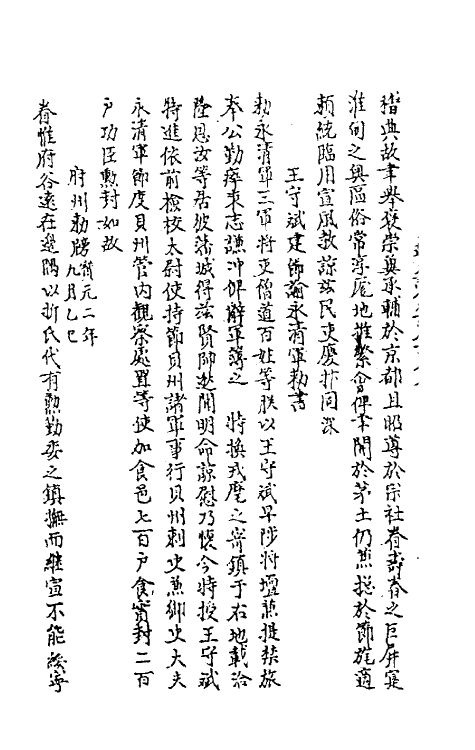 稽典故聿舉褒崇奠承輔於京都且昭尊於宗社眷壽春之巨屏寔
淮甸之奧區俗常淳厖地推繁會俾聿開於茅土仍薦總於節旄適
頼統臨用宣風教諒茲民吏慶抃同深
王守斌建節諭永清軍勑書
勑永清軍三軍將吏僧道百姓等朕以王守斌早陟將壇薦提禁旅
奉公勤瘁秉志謙冲俾解軍簿之　特換戎麾之寄鎮于右地載洽
隆恩汝等居彼藩城得茲賢帥逖聞明命諒慰乃懷今特授王守斌
特進依前檢校太尉使持節貝州諸軍事行貝州刺史兼御史大夫
永清軍節度貝州管内觀察處置等使加食邑七百戶食實封二百
戶功臣勲封如故
府州勑牓 景元二年九月乙巳
眷惟府谷遠在邊隅以折氏代有勲勤委之鎮撫而継宣不能綏寧